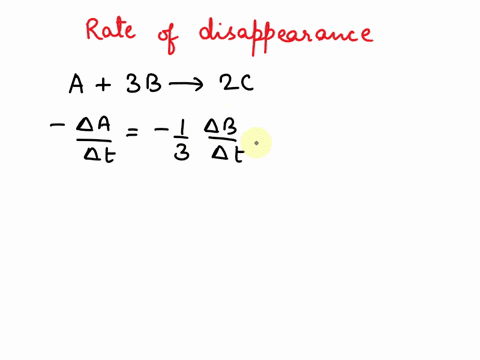 Rate of disappearance
A + 3B → 2C
- ΔA/Δt = - 1/3 ΔB/Δt